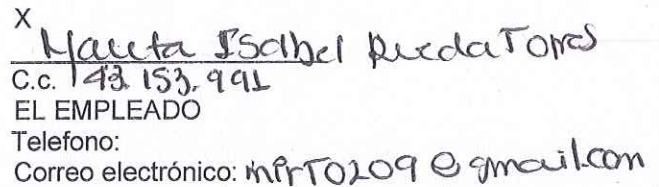 X
Isabel Rueda Torres
C.c. 43.153.991
EL EMPLEADO
Telefono:
Correo electrónico: mirT0209@gmail.com